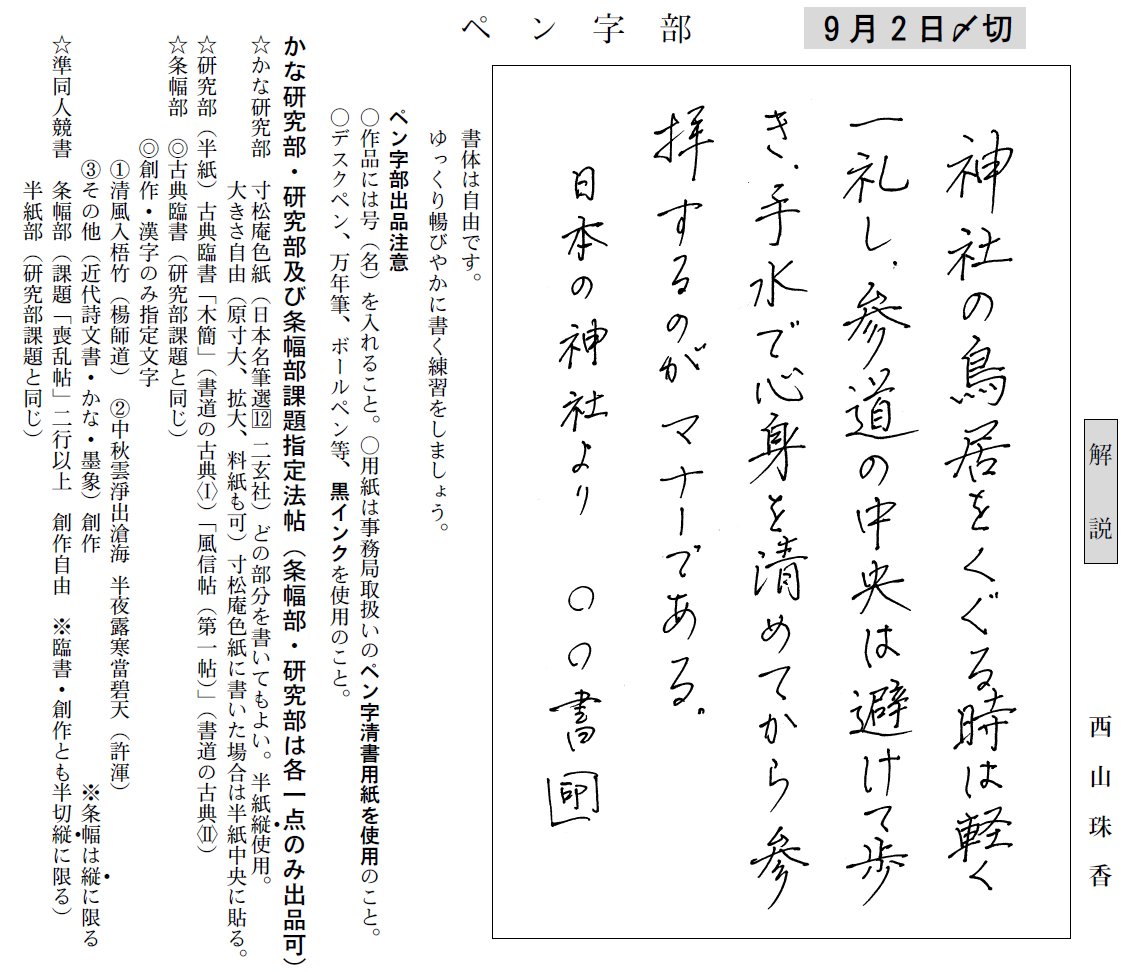 9月2日〆切
ペン字部
解説
西山珠香
神社の鳥居をくぐる時は軽く
一礼し、参道の中央は避けて歩
き、手水で心身を清めてから参
拝するのがマナーである。
日本の神社より　〇〇書 印
書体は自由です。
ゆっくり暢びやかに書く練習をしましょう。
ペン字部出品注意
〇作品には号（名）を入れること。〇用紙は事務局取扱いのペン字清書用紙を使用のこと。
〇デスクペン、万年筆、ボールペン等、黒インクを使用のこと。
かな研究部・研究部及び条幅部課題指定法帖（条幅部・研究部は各一点のみ出品可）
☆かな研究部　寸松庵色紙（日本名筆選12　二玄社）どの部分を書いてもよい。半紙縦使用。
大きさ自由（原寸大、拡大、料紙も可）寸松庵色紙に書いた場合は半紙中央に貼る。
☆研究部（半紙）古典臨書「木簡」（書道の古典〈Ⅰ〉）「風信帖（第一帖）」（書道の古典〈Ⅱ〉）
☆条幅部　◎古典臨書（研究部課題と同じ）
◎創作・漢字のみ指定文字
①清風入梧竹（楊師道）　②中秋雲淨出滄海　半夜露寒當碧天（許渾）
③その他（近代詩文書・かな・墨象）創作　※条幅は縦に限る
☆準同人競書　条幅部（課題「喪乱帖」二行以上　創作自由　※臨書・創作とも半切縦に限る）
半紙部（研究部課題と同じ）